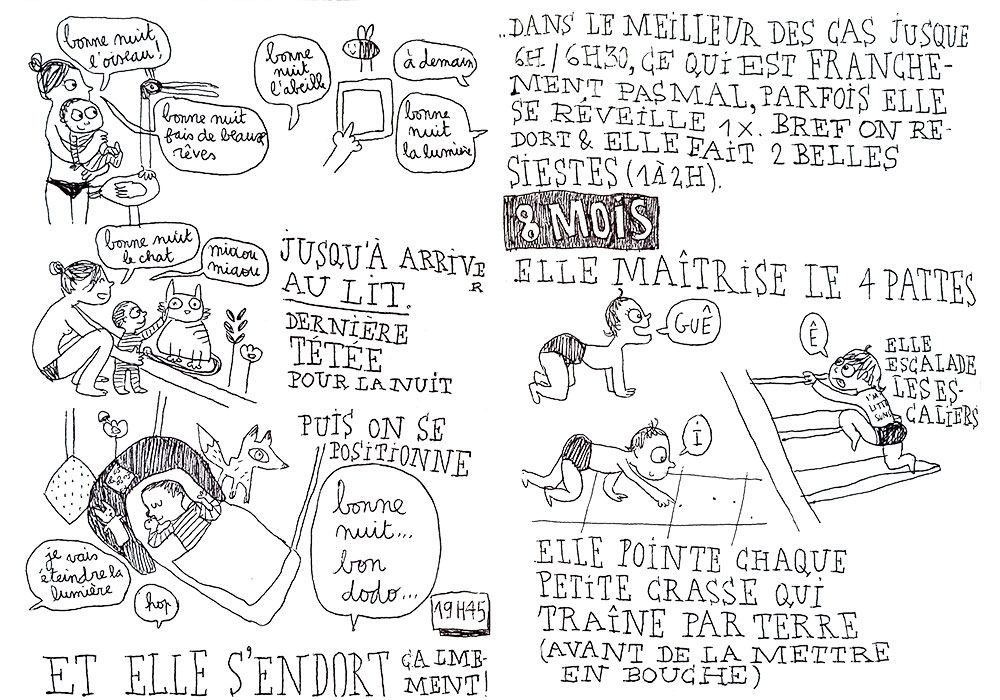 bonne nuit
l'oiseau!
bonne nuit
fais de beaux
rêves
bonne
nuit
l'abeille
à demain
bonne
nuit
la lumière
bonne nuit
le chat
miaou
miaou
JUSQU'À ARRIVER
AU LIT.
DERNIÈRE
TÉTÉE
POUR LA NUIT
PUIS ON SE
POSITIONNE
bonne
nuit...
bon
dodo...
je vais
éteindre la
lumière
hop
19H45
ET ELLE S'ENDORT CALME-
MENT!
..DANS LE MEILLEUR DES CAS JUSQUE
6H/6H30, CE QUI EST FRANCHE-
MENT PAS MAL, PARFOIS ELLE
SE RÉVEILLE 1X. BREF ON RE-
DORT & ELLE FAIT 2 BELLES
SIESTES (1À2H).
8 MOIS
ELLE MAÎTRISE LE 4 PATTES
GUÊ
Ê
ELLE
ESCALADE
LES ES-
CALIERS
I'M A
LITTLE
Í
ELLE POINTE CHAQUE
PETITE CRASSE QUI
TRAÎNE PAR TERRE
(AVANT DE LA METTRE
EN BOUCHE)